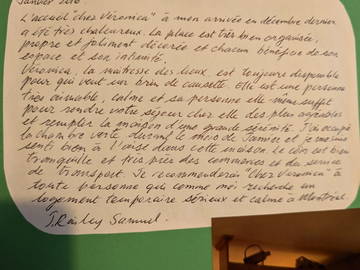 Janvier 2016
L'accueil "chez Véronica" à mon arrivée en décembre dernier
a été très chaleureux. La place est très bien organisée,
propre et joliment décorée et chacun bénéficie de son
espace et son intimité.
Véronica, la maîtresse des lieux est toujours disponible
pour qui veut un brin de causette. Elle est une personne
très aimable, calme et sa personne elle même suffit
pour rendre votre séjour chez elle des plus agréables
et remplir la maison d'une grande sérénité. J'ai occupé
la chambre verte durant le mois de Janvier et je me suis
senti bien à l'aise dans cette maison. Le coin est bien
tranquille et très près des commerces et du service
de transport. Je recommanderai "chez Véronica" à
toute personne qui comme moi recherche un
logement temporaire sérieux et calme à Montréal.
Samuel.